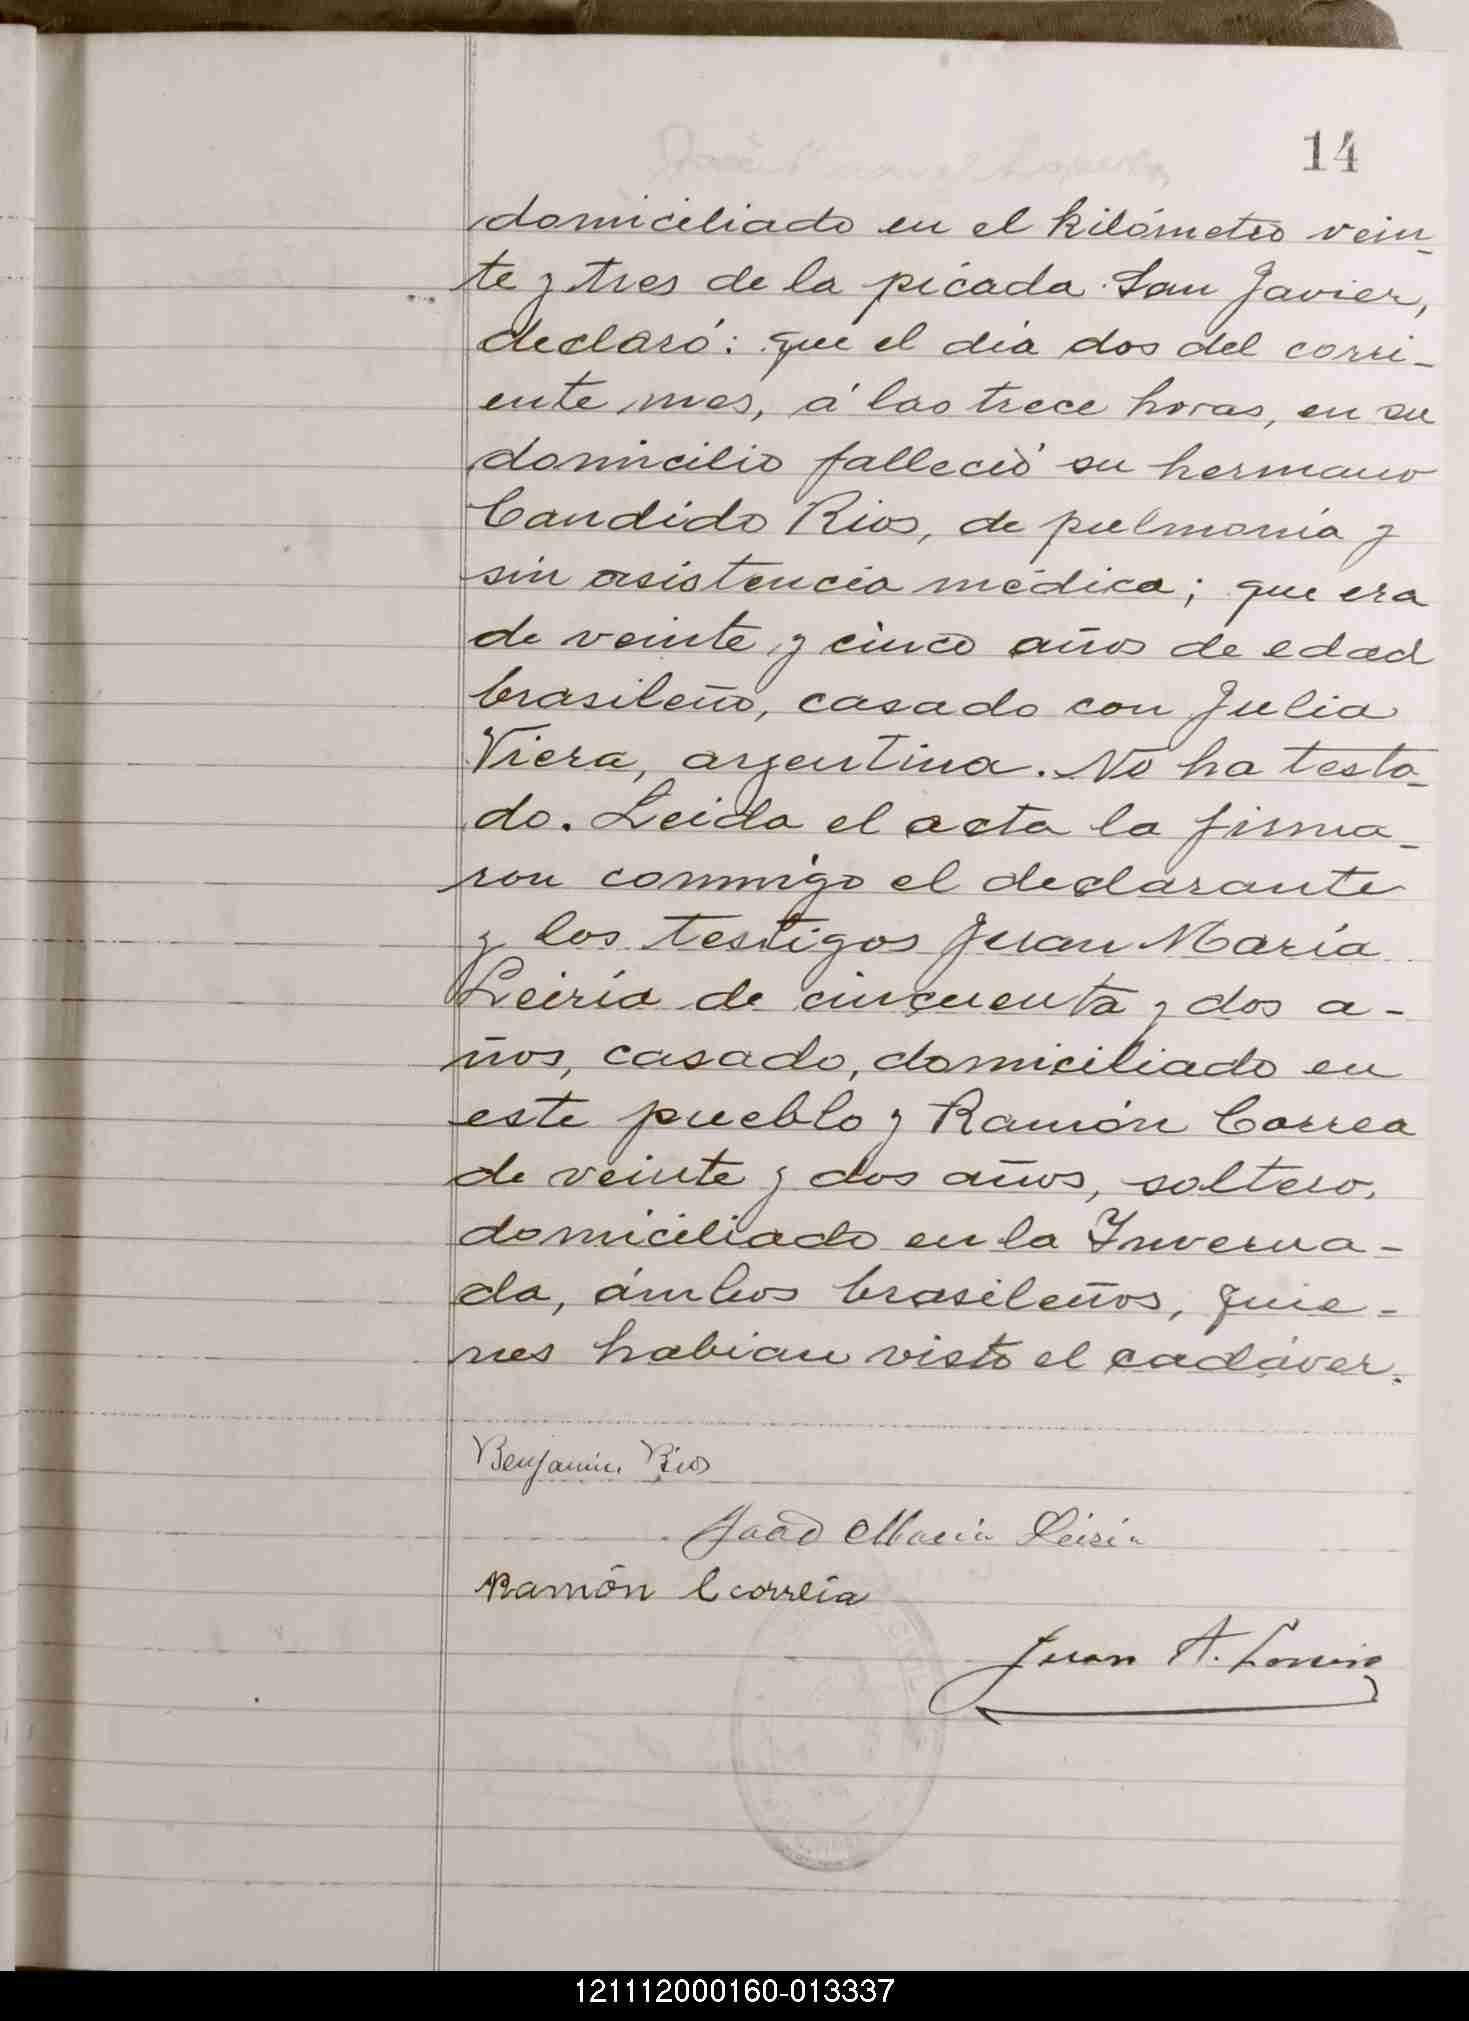 14
domiciliado en el kilómetro vein-
te y tres de la picada San Javier,
declaró: que el dia dos del corri-
ente mes, á las trece horas, en su
domicilio falleció su hermano
Candido Rios, de pulmonia y
sin asistencia médica; que era
de veinte y cinco años de edad
brasileño, casado con Julia
Viera, argentina. No ha testa-
do. Leida el acta la firma-
ron conmigo el declarante
y los testigos Juan Maria
Leiria de cincuenta y dos a-
ños, casado, domiciliado en
este pueblo y Ramón Correa
de veinte y dos años, soltero,
domiciliado en la Inverna-
da, ámbos brasileños, quie-
nes habian visto el cadáver.
Benjamin Rios
João Maria Leiria
Ramón Correia
Juan A.
121112000160-013337